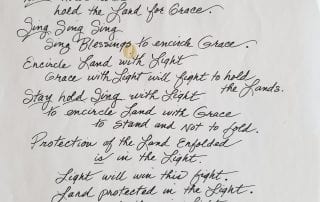 hold the Land for Grace.
Sing Sing Sing
Sing Blessings to encircle Grace.
Encircle Land with Light
Grace with Light will fight to hold
the Lands.
Stay hold Sing with Light
to encircle Land with Grace
to Stand and Not to Fold.
Protection of the Land Enfolded
is in the Light.
Light will win this fight.
Land protected in the Light.